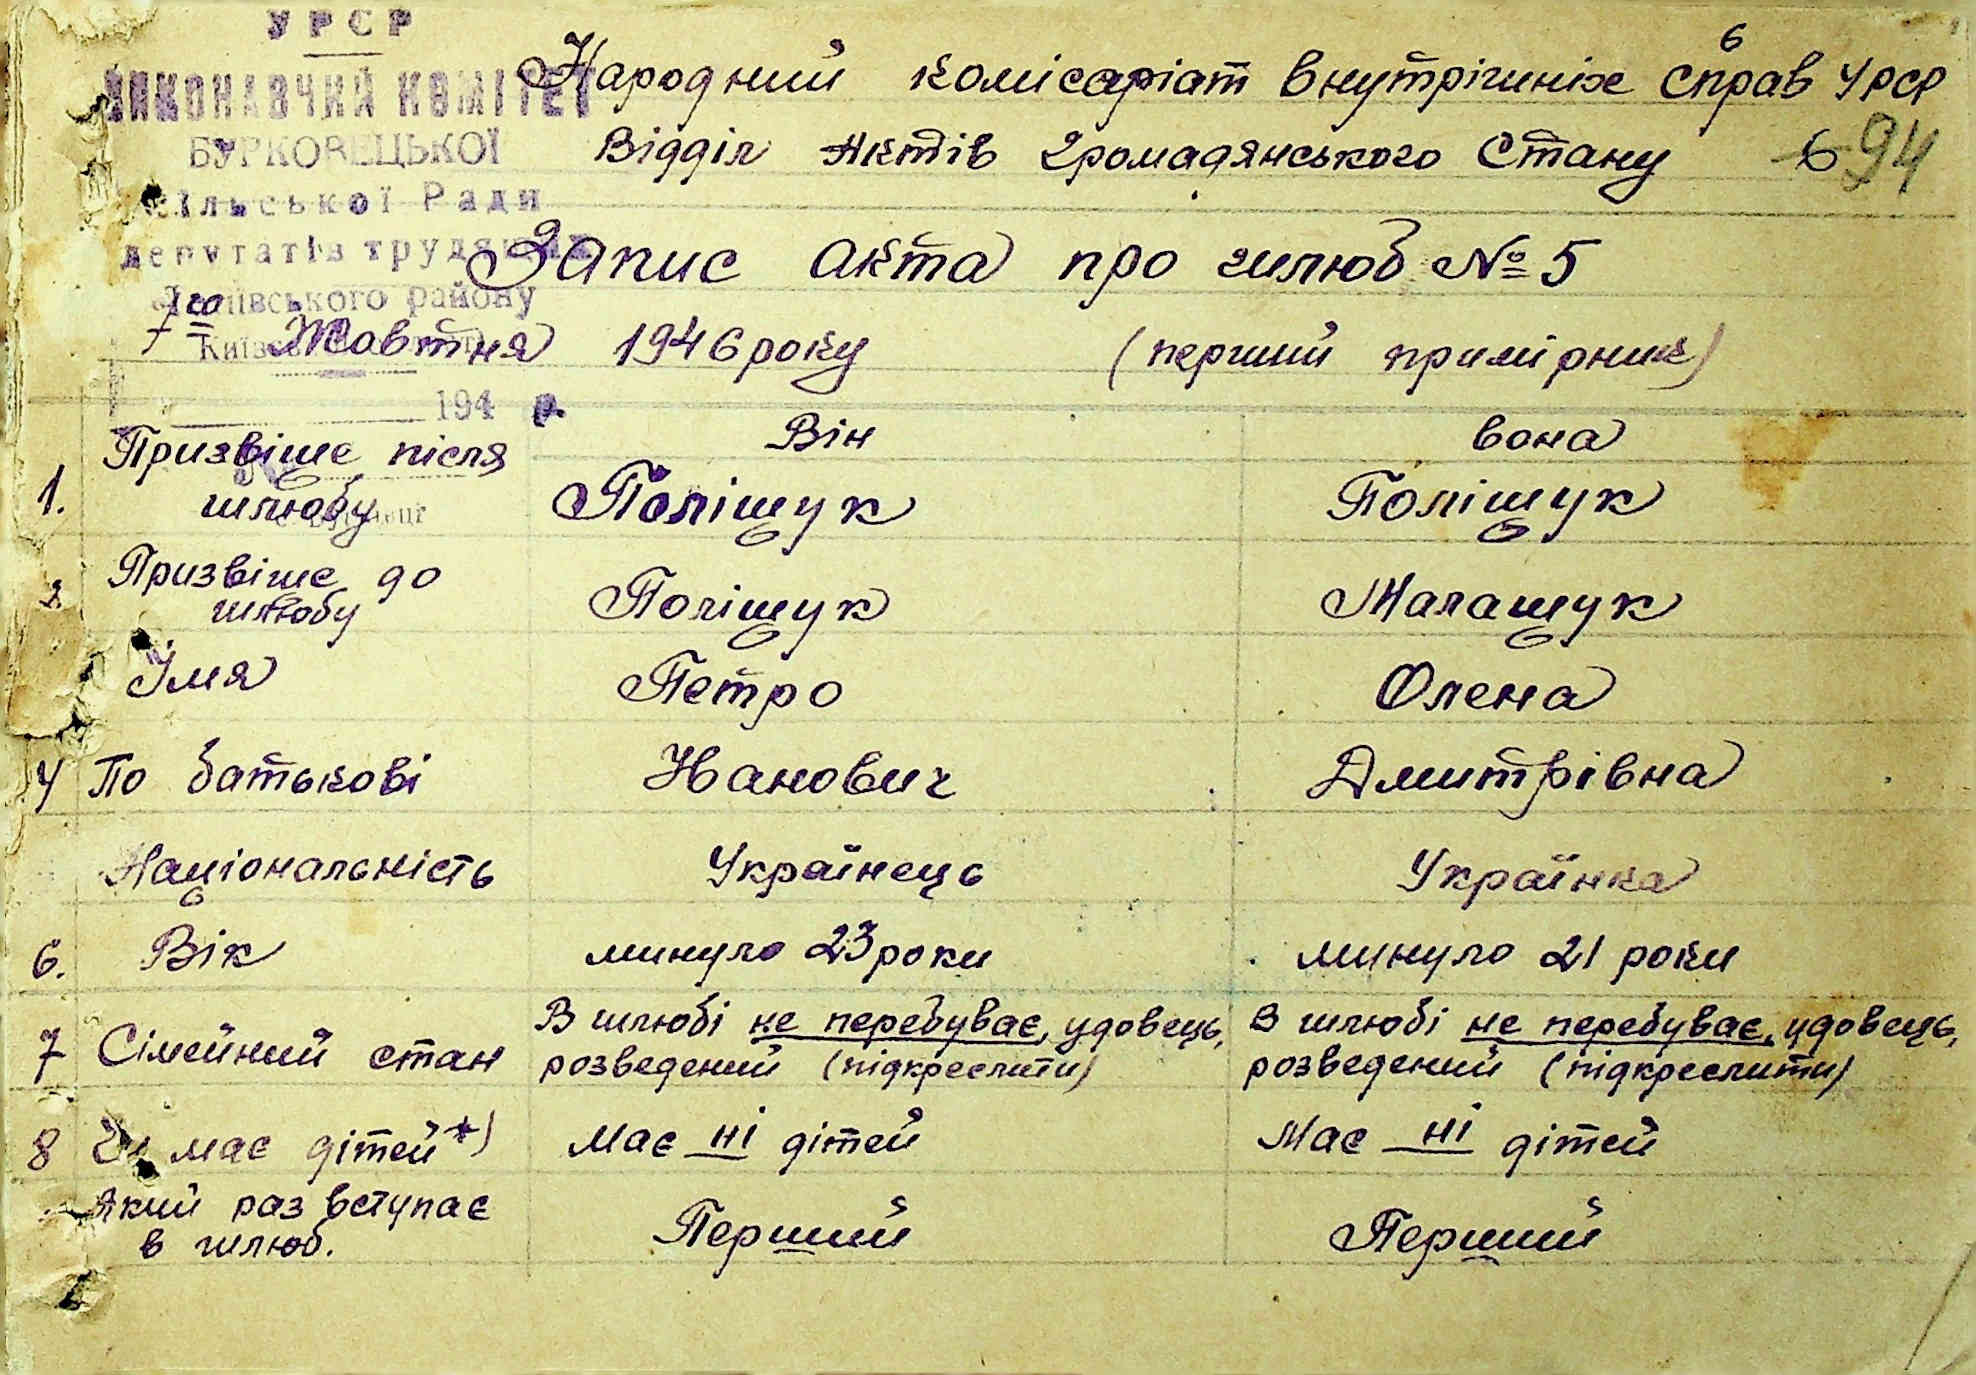 УРСР
ВИКОНАВЧИЙ КОМІТЕТ
БУРКОВЕЦЬКОЇ
сільської Ради
депутатів трудящих
району
194 р.
6
Народний комісаріат внутрішніх справ УРСР
Відділ Актів Громадянського Стану 6 94
Запис акта про шлюб № 5
7го Жовтня 1946 року (перший примірник)
Він вона
1. Призвіще після шлюбу Поліщук Поліщук
2 Призвіще до шлюбу Поліщук Малащук
Імя Петро Олена
4 По батькові Иванович Дмитрівна
Національність Українець Українка
6. Вік минуло 23 роки минуло 21 роки
7 Сімейний стан В шлюбі не перебуває, удовець, розведений (підкреслити) В шлюбі не перебуває, удовець, розведений (підкреслити)
8 Чи має дітей*) Має ні дітей Має ні дітей
Який раз вступає в шлюб. Перший Перший